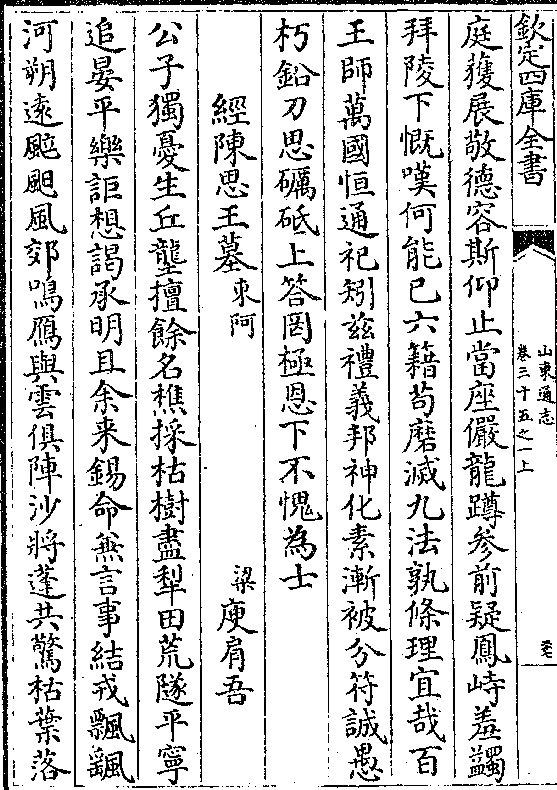 欽定四庫全書
山東通志
卷三十五之一上
庭獲展敬德容斯仰止當座儼龍蹲參前疑鳳峙羞蠲
拜陵下慨嘆何能已六籍茍磨滅九法孰條理宜哉百
王師萬國恒通祀矧兹禮義邦神化素漸被分符誠愚
朽鉛刀思礪砥上答罔極恩下不愧為士
經陳思王墓 東阿 梁 庾肩吾
公子獨憂生丘壟擅餘名樵採枯樹盡犁田荒隧平寧
追晏平樂詎想謁承明且余来錫命兼言事結戎飄颻
河朔遠颮颮風郊鳴鴈與雲俱陣沙將蓬共驚枯葉落